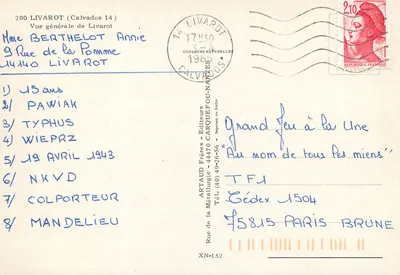 200 LIVAROT (Calvados 14)
Vue générale de Livarot
Mme BERTHELOT Annie
9 Rue de la Pomme
14140 LIVAROT
1) 15 ans
2/ PAWIAK
3/ TYPHUS
4) WIEPRZ
5/ 19 AVRIL 1943
6/ NKVD
7/ COLPORTEUR
8/ MANDELIEU
14 LIVAROT
17H30
CALVADOS
2,10
ARTAUD Frères - Editeurs
Rue de la Métallurgie - 44470 CARQUEFOU-NANTES
Tél. (40) 49-26-56 - Imprimé en Italie
XN-152
Grand Jeu à la Une
"Au nom de tous les miens"
TF1
Cédex 1504
75815 PARIS BRUNE